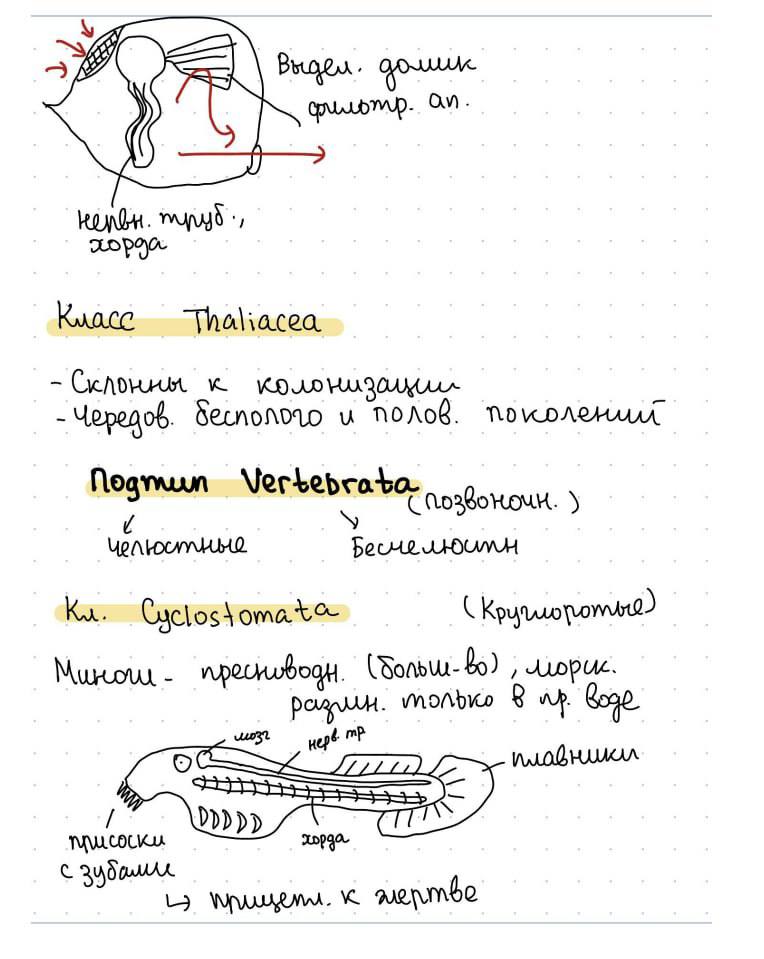 Выдел. домик
фильтр. ап.
нервн. труб.,
хорда
Класс Thaliacea
- Склонны к колонизации
- Чередов. бесполого и полов. поколений
Подтип Vertebrata (позвоночн.)
Челюстные Бесчелюстн
Кл. Cyclostomata (Круглоротые)
Миноги - пресноводн. (больш-во), морск.
размн. только в пр. воде
мозг
нерв. тр
плавники
хорда
присоски
с зубами
↳ прицепл. к жертве